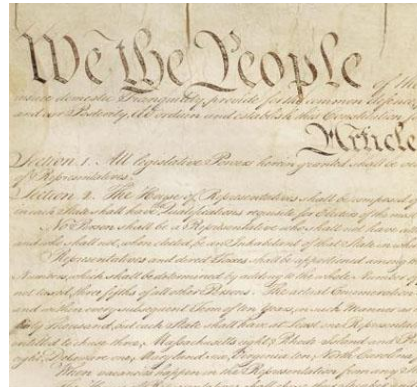 We the People of the
insure domestic Tranquility, provide for the common defence
and our Posterity, do ordain and establish this Constitution for
Article
Section. 1. All legislative Powers herein granted shall be
of Representatives.
Section. 2. The House of Representatives shall be composed of
in each State shall have Qualifications requisite for Electors of the most
No Person shall be a Representative who shall not have
and who shall not, when elected, be an Inhabitant of that State in which
Representatives and direct Taxes shall be apportioned among the
Numbers, which shall be determined by adding to the whole Number of
not taxed, three fifths of all other Persons. The actual Enumeration
and within every subsequent Term of ten Years, in such Manner as
thirty Thousand, but each State shall have at Least one Representative
entitled to chuse three, Massachusetts eight, Rhode Island and
eight, Delaware one, Maryland six, Virginia ten, North Carolina
When vacancies happen in the Representation from any
The House of Representatives shall